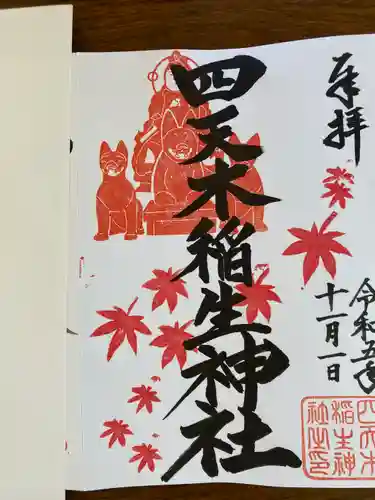 奉拝
令和五年
十一月一日
四天木稲生神社
四天木
稲生神
社之印